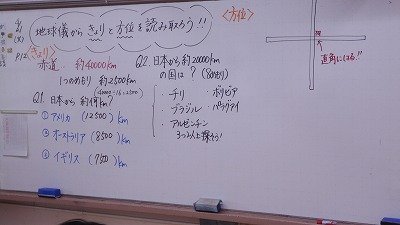 地球儀から きょりと方位を読み取ろう!!
<方位>
<きょり>
赤道 約40000km
1つのめもり 約2500km
(40000÷16=2500)
Q1. 日本から 約何km?
① アメリカ (12500) km
② オーストラリア (8500) km
③ イギリス (9500) km
Q2. 日本から約20000km
の国は? (8めもり)
・チリ ・ボリビア
・ブラジル ・パラグアイ
・アルゼンチン
3つ以上探そう!
直角になる!!